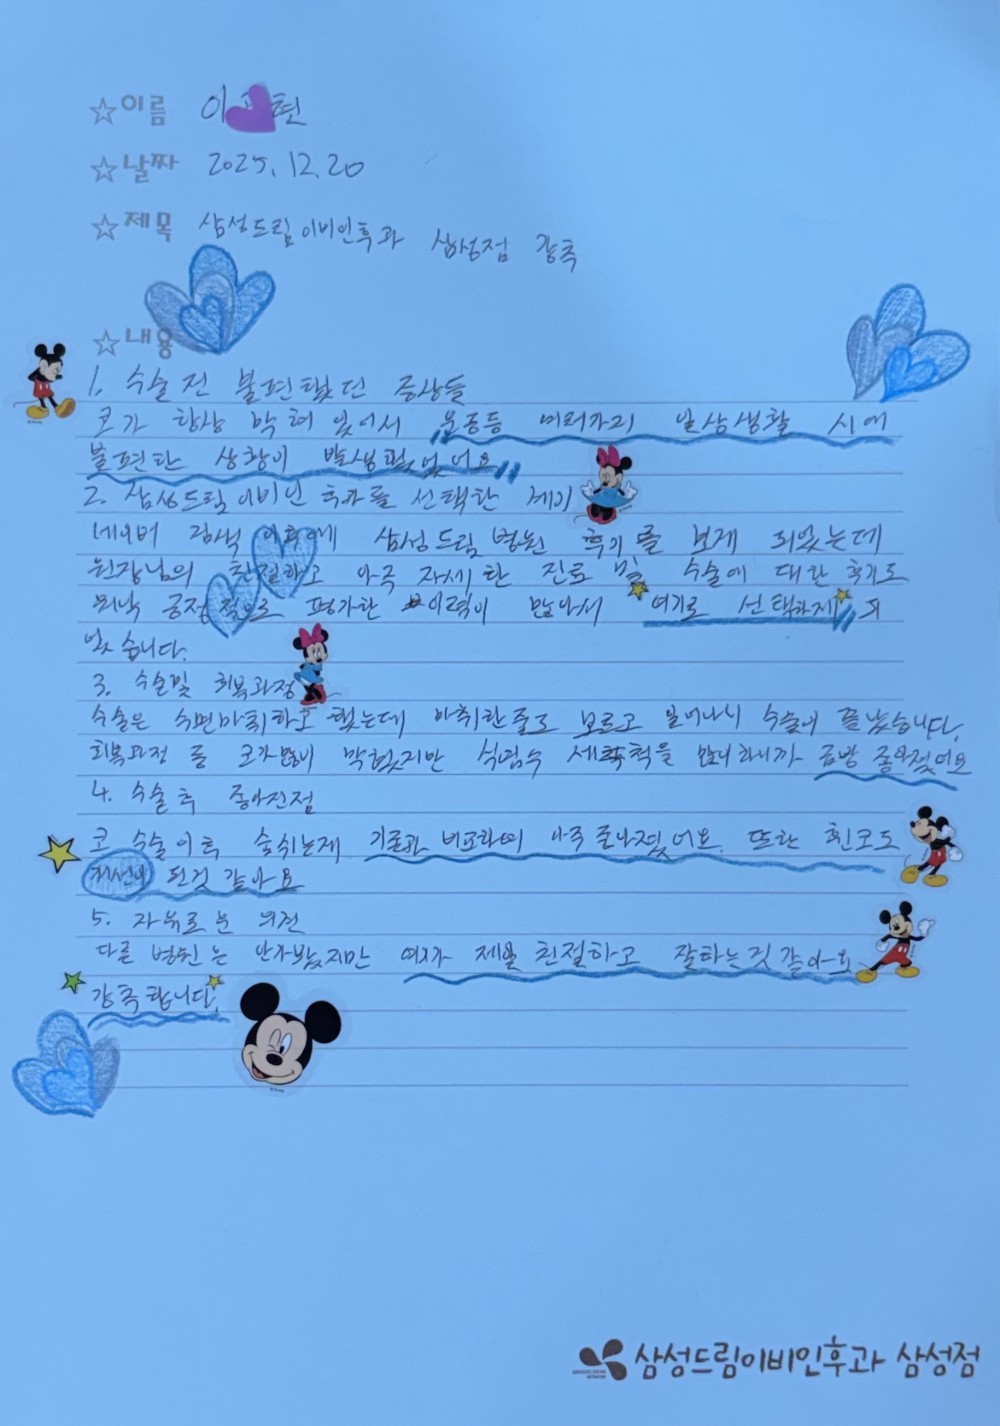 ☆이름 이 현
☆날짜 2025.12.20
☆제목 삼성드림이비인후과 삼성점 강추
☆내용
1. 수술 전 불편했던 증상들
코가 항상 막혀 있어서 운동등 여러가지 일상생활 시에
불편한 상황이 발생됬었어요
2. 삼성드림이비인후과를 선택한 계기
네이버 검색 이후에 삼성드림병원 후기를 보게 되었는데
원장님의 친절하고 아주 자세한 진료 및 수술에 대한 후기도
워낙 긍정적으로 평가한 이력이 많아서 여기로 선택하게 되
었습니다.
3. 수술및 회복과정
수술은 수면마취하고 했는데 마취한줄도 모르고 일어나니 수술이 끝났습니다.
회복과정 중 코가많이 막혔지만 식염수 세척을 많이하니까 금방 좋아졌어요
4. 수술 후 좋아진점
코 수술이후 숨쉬는게 기존과 비교하여 아주 좋아졌어요. 또한 휜코도
개선이 된것 같아요
5. 자유로운 의견
다른 병원은 안가봤지만 여기가 제일 친절하고 잘하는것 같아요
강추합니다.
삼성드림이비인후과 삼성점